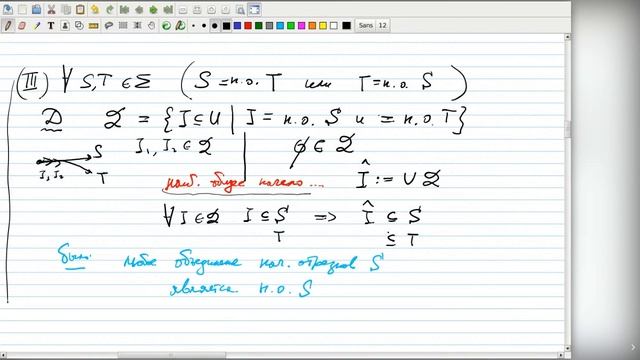 Sans 12
(III) ∀ S,T ∈ Σ ( S = н.о. T или T = н.о. S )
D 𝓘 = { I ⊆ U | I = н.о. S и = н.о. T }
I₁, I₂ ∈ 𝓘 ∅ ∈ 𝓘
S
I₁ I₂
T
наиб. общее начало ... Î := ∪ 𝓘
∀ I ∈ 𝓘 I ⊆ S ⇒ Î ⊆ S
T ⊆ T
было: любое объединение нач. отрезков S
является н.о. S